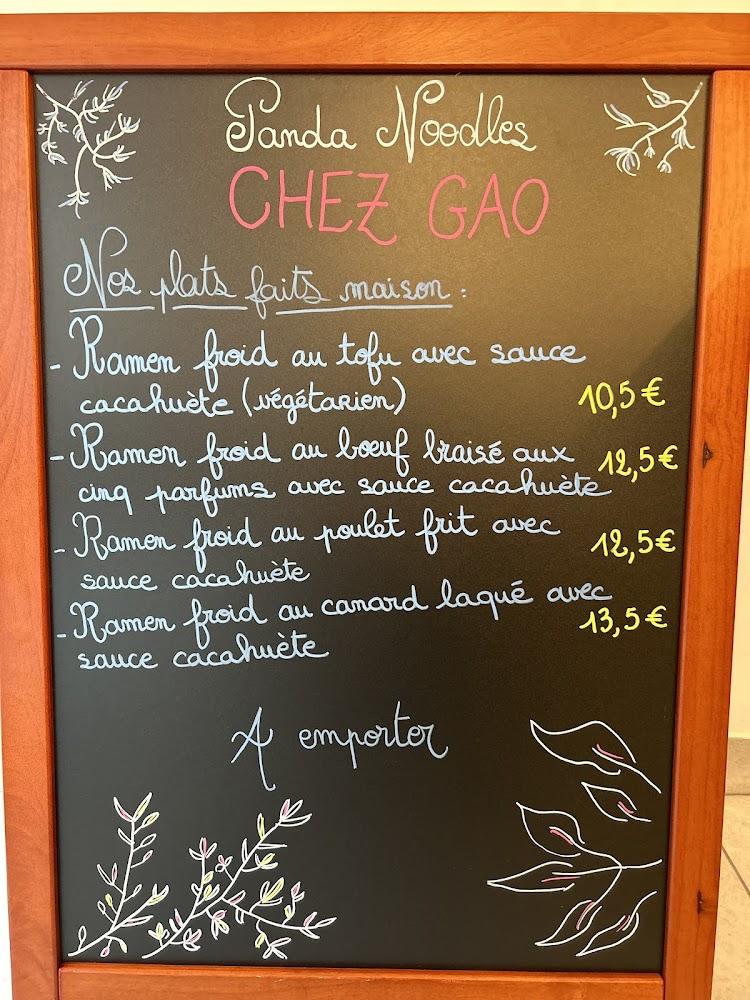 Panda Noodles
CHEZ GAO
Nos plats faits maison :
- Ramen froid au tofu avec sauce
cacahuète (végétarien) 10,5 €
- Ramen froid au bœuf braisé aux 12,5 €
cinq parfums avec sauce cacahuète
- Ramen froid au poulet frit avec 12,5 €
sauce cacahuète
- Ramen froid au canard laqué avec 13,5 €
sauce cacahuète
A emporter